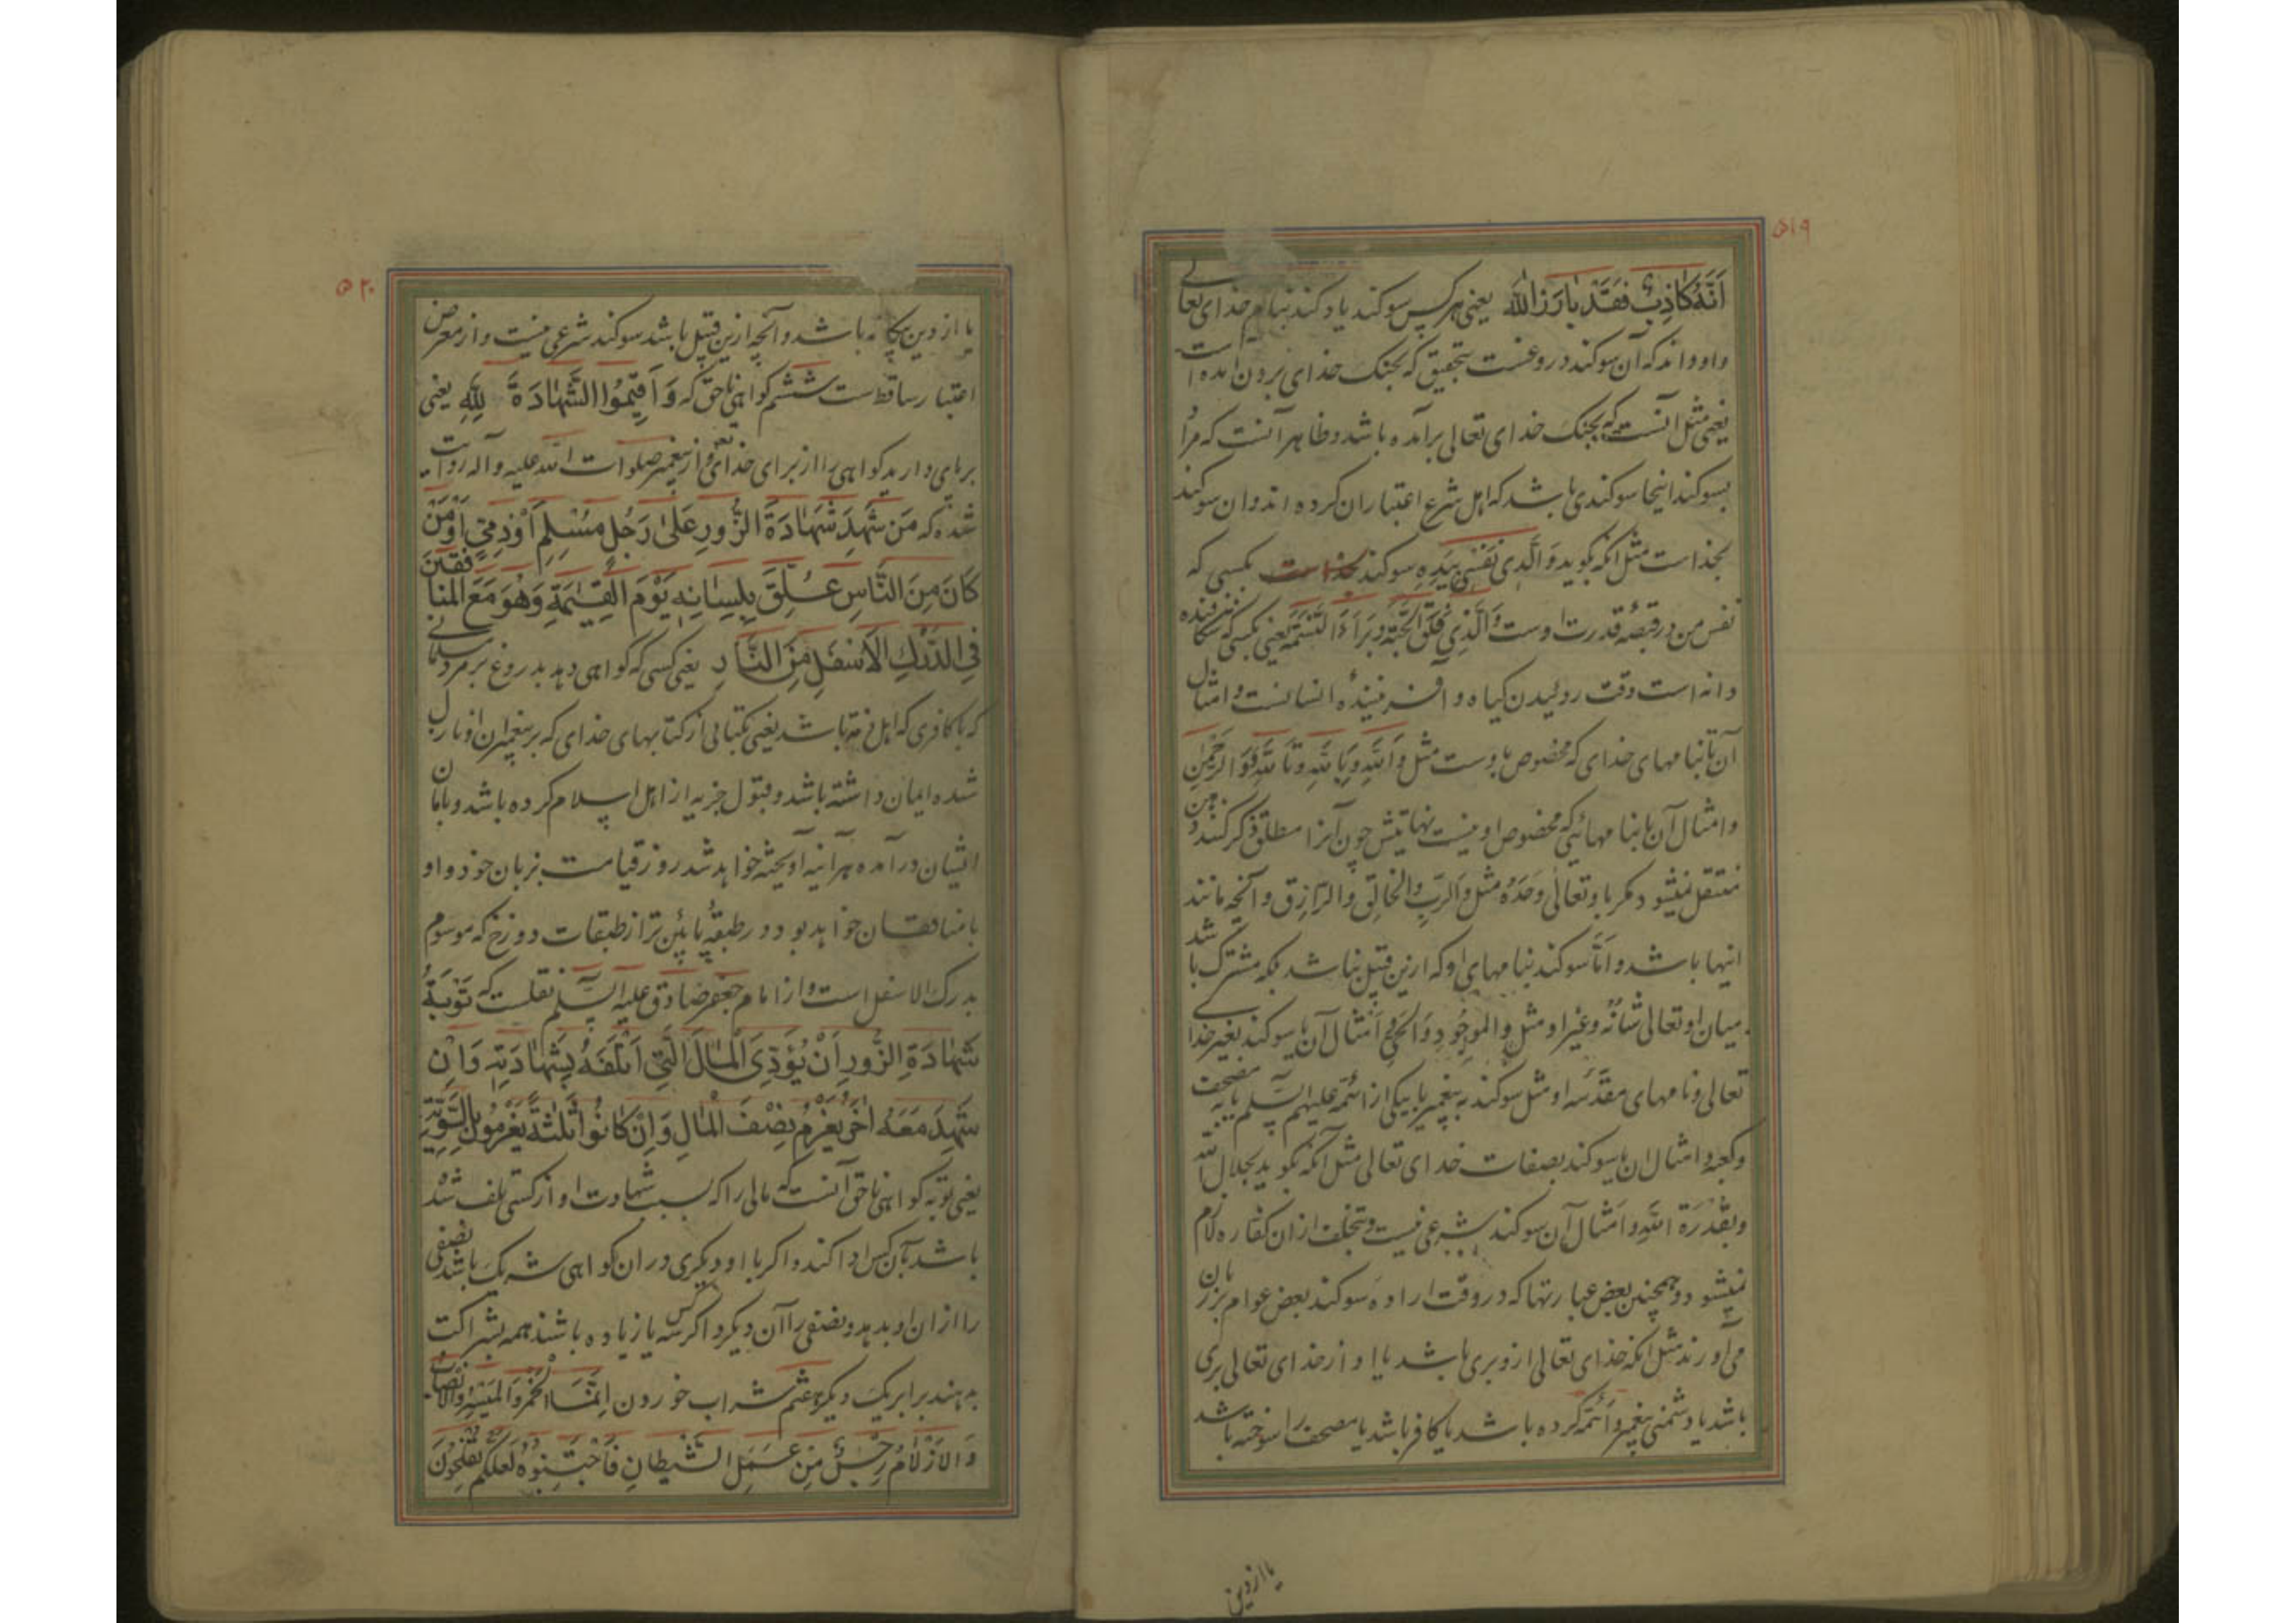 ۵۱۹
اَنَّهُ كَاذِبٌ فَقَدْ بَارَزَ اللهَ یعنی هر کس سوکند یاد کند بنام خدای تعالی
و او داند که آن سوکند دروغست بتحقیق که بجنک خدای برون آمده است
یعنی مثل آنست که بجنک خدای تعالی برآمده باشد و ظاهر آنست که مراد
بسوکند اینجا سوکندی باشد که اهل شرع اعتبار آن کرده اند و آن سوکند
بخداست مثل آنکه بکوید وَالَّذی نَفْسی بِیَدِهِ سوکند بکسی که
نفس من در قبضهٔ قدرت اوست وَالَّذِی فَلَقَ الْحَبَّةَ وَبَرَأَ النَّسَمَةَ یعنی بکسی که شکافنده
دانه است وقت روئیدن کیاه و آفرینندهٔ انسانست و امثال
آن یا بنامهای خدای که مخصوص باوست مثل وَاللّهِ وَبِاللّهِ وَتَاللّهِ وَالرَّحْمٰنِ
و امثال آن یا بنامهائی که مخصوص او نیست نهایتش چون آنرا مطلق ذکر کنند ذهن
منتقل نمیشود مکر باو تعالی وَحْدَهُ مثل وَالرَّبِّ وَالْخَالِقِ وَالرَّازِقِ و آنچه مانند
اینها باشد و امّا سوکند بنامهای او که ازین قبیل نباشد بلکه مشترک باشد
میان او تعالی شَانُهُ و غیر او مثل وَالْمَوْجُودِ وَالْحَیِّ و امثال آن یا سوکند بغیر خدای
تعالی و نامهای مقدّسه او مثل سوکند به پیغمبر یا بیکی از ائمّه علیهم السّلم یا به مصحف
و کعبه و امثال آن یا سوکند بصفات خدای تعالی مثل آنکه بکوید بجلال اللّه
وبقُدْرَةِ اللّهِ و امثال آن سوکند شرعی نیست و بتخلف ازان کفاره لازم
نمیشود و همچنین بعض عبارتها که در وقت اراده سوکند بعض عوام بر زبان
می آورند مثل آنکه خدای تعالی ازو بری باشد یا او از خدای تعالی بری
باشد یا دشمنی پیغمبر و ائمّه کرده باشد یا کافر باشد یا مصحف را سوخته باشد
یا از دین
۵۲۰
یا از دین بیکانه باشد و آنچه ازین قبیل باشد سوکند شرعی نیست و از معرض
اعتبار ساقط است ششم کواهی ناحق که وَاَقِیمُوا الشَّهَادَةَ لِلّهِ یعنی
برپای دارید کواهی را از برای خدای و از پیغمبر صلوات اللّه علیه و آله روایت
شده که مَنْ شَهِدَ شَهَادَةَ الزُّورِ عَلیٰ رَجُلٍ مُسْلِمٍ اَوْ ذِمِّیٍّ اَوْ مَنْ
كَانَ مِنَ النَّاسِ عُلِّقَ بِلِسَانِهِ یَوْمَ الْقِیٰمَةِ وَهُوَ مَعَ الْمُنَافِقِینَ
فِی الدَّرْكِ الْاَسْفَلِ مِنَ النَّارِ یعنی کسی که کواهی دهد بدروغ بر مرد مسلمانی
که یا کافری که اهل ذمّه باشد یعنی بکتابی از کتابهای خدای که بر پیغمبران او نازل
شده ایمان داشته باشد و قبول جزیه از اهل اسلام کرده باشد و بامان
ایشان درآمده هر آئینه آویخته خواهد شد روز قیامت بزبان خود و او
با منافقان خواهد بود در طبقهٔ پائین تر از طبقات دوزخ که موسوم
بدرک الاسفل است و از امام جعفر صادق علیه السّلم نقلست که تَوْبَةُ
شَهَادَةِ الزُّورِ اَنْ یُؤَدِّیَ الْمَالَ الَّتِی اَتْلَفَهُ بِشَهَادَتِهِ وَاِنْ
شَهِدَ مَعَهُ اٰخَرُ یَغْرُمُ نِصْفَ الْمَالِ وَاِنْ كَانُوا ثَلٰثَةً یَغْرُمُونَ بِالسَّوِیَّةِ
یعنی توبه کواهی ناحق آنست که مالی را که بسبب شهادت او از کسی تلف شده
باشد بآن کس ادا کند و اکر با او دیکری در ان کواهی شریک باشد نصفی
را ازان او بدهد و نصفی را آن دیکر و اکر سه کس یا زیاده باشند همه بشراکت
بدهند برابر یک دیکر هفتم شراب خوردن اِنَّمَا الْخَمْرُ وَالْمَیْسِرُ وَالْاَنْصَابُ
وَالْاَزْلَامُ رِجْسٌ مِنْ عَمَلِ الشَّیْطَانِ فَاجْتَنِبُوهُ لَعَلَّكُمْ تُفْلِحُونَ